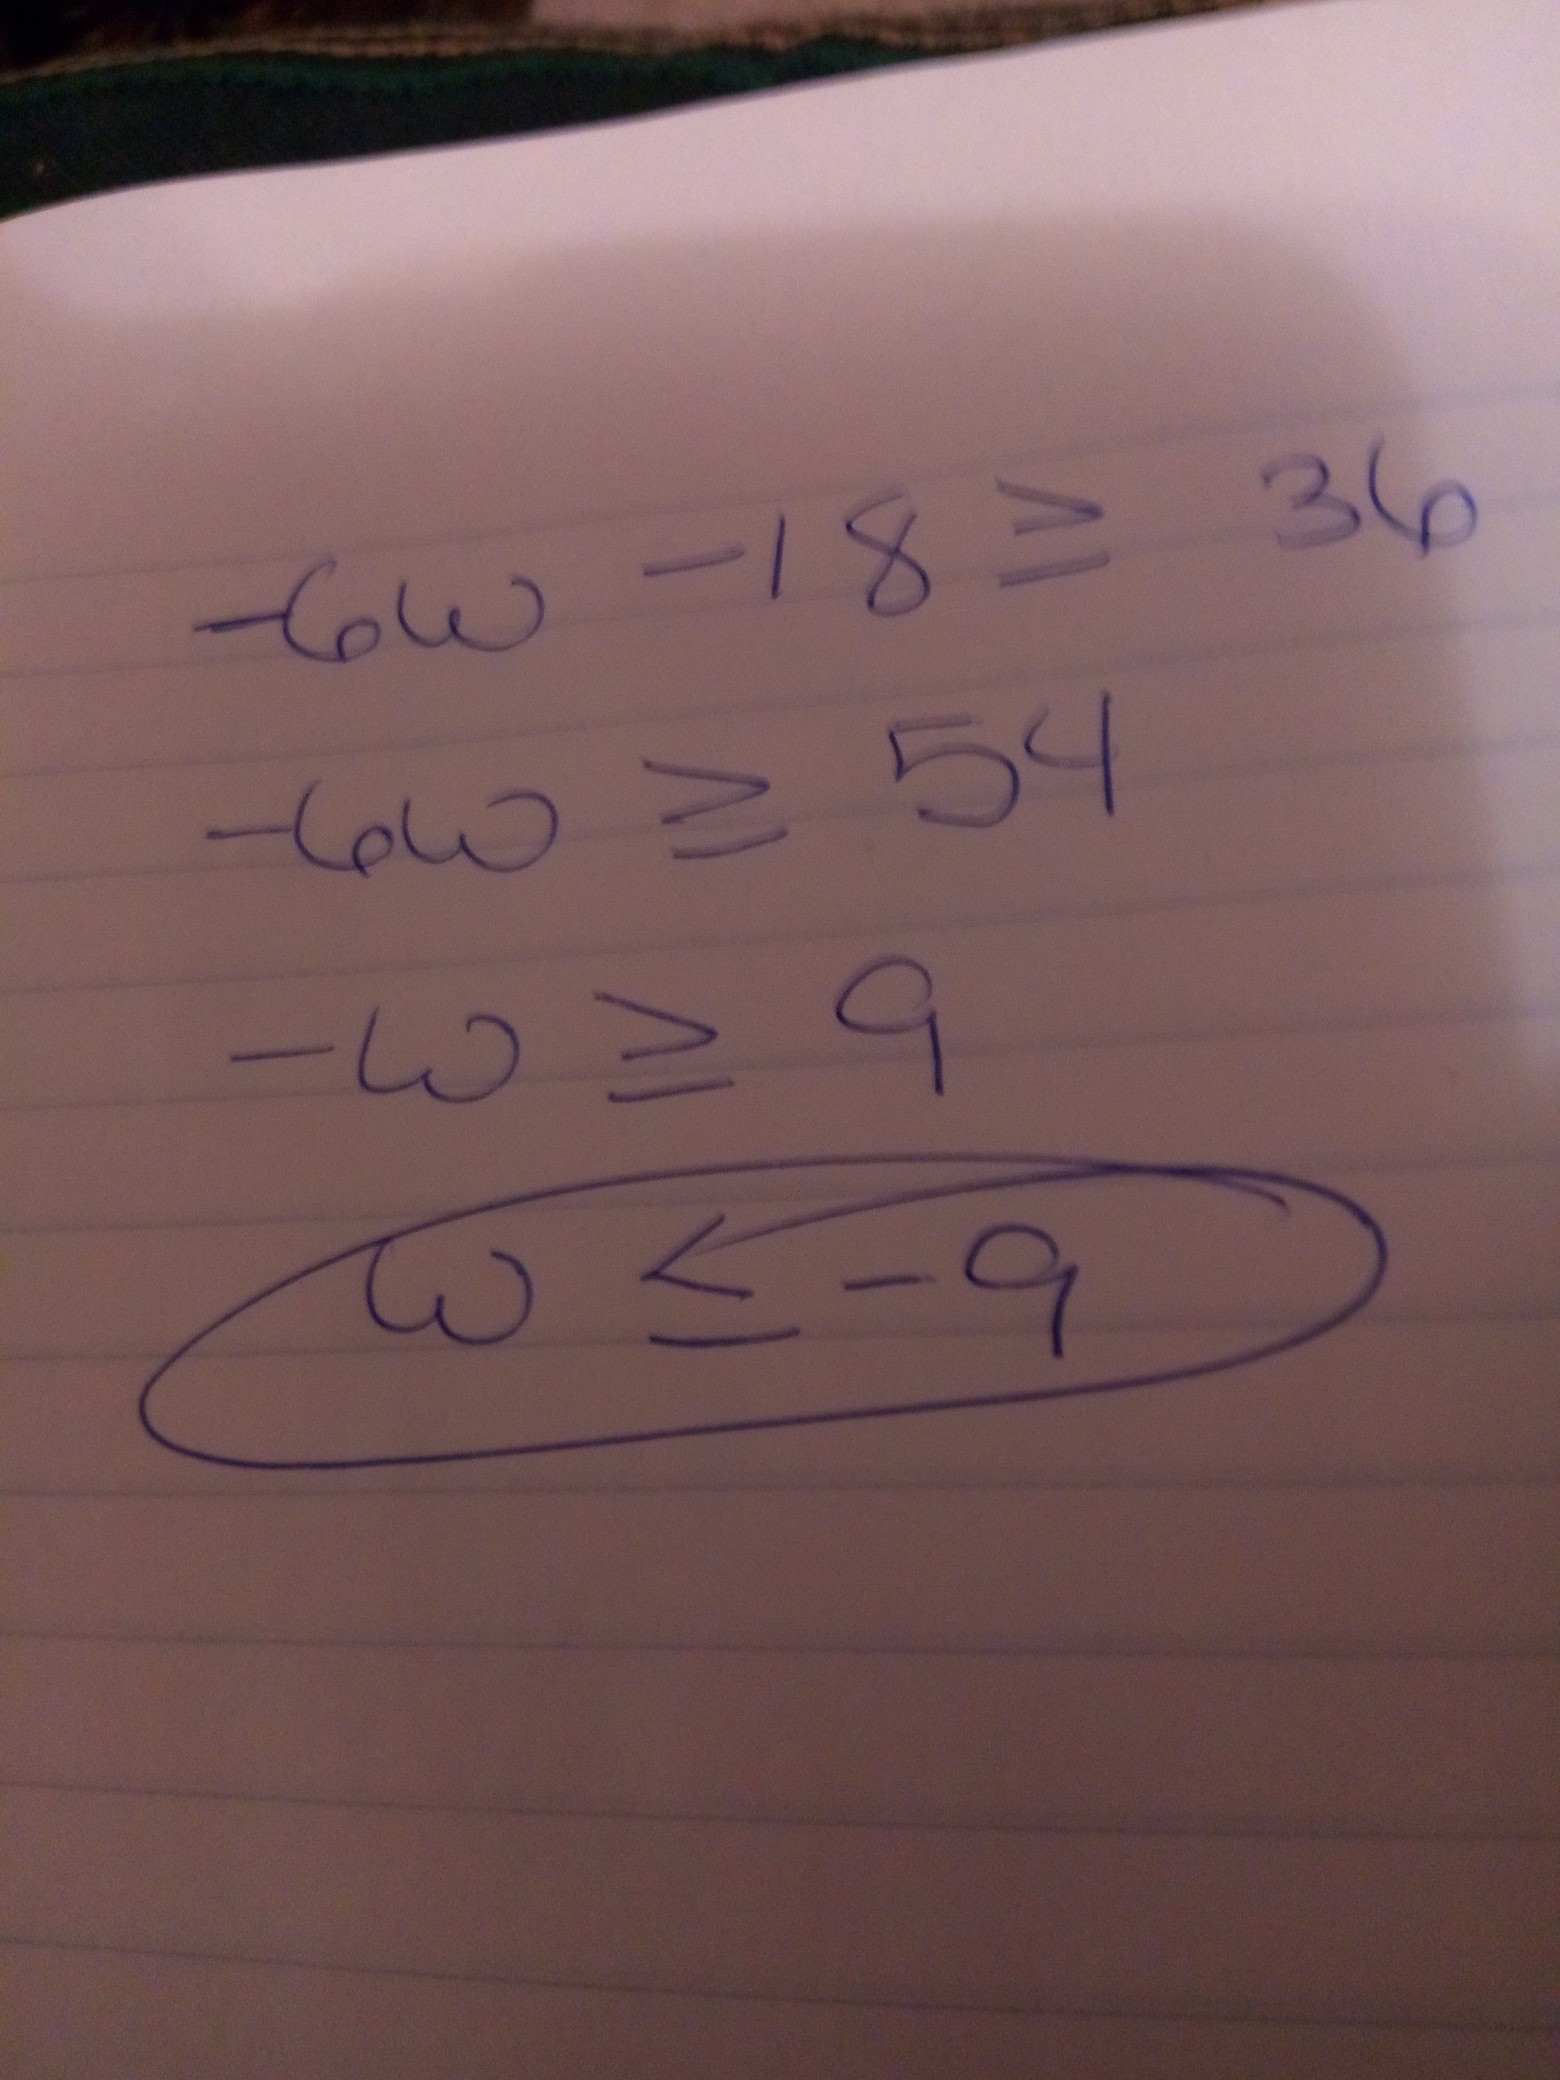 -6w -18 ≥ 36
-6w ≥ 54
-w ≥ 9
w ≤ -9